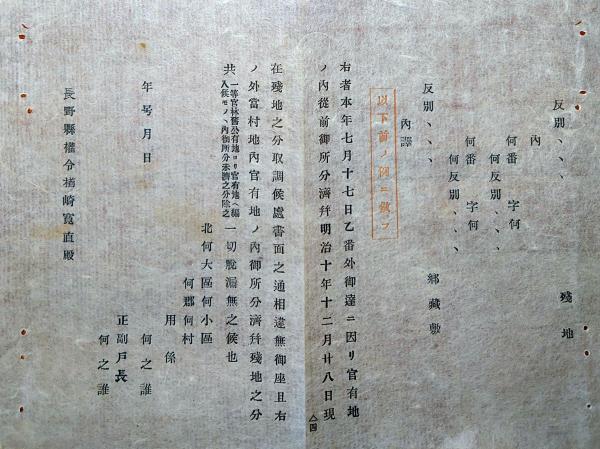 反別、、、　殘地
內
何番　字何
何反別、、、
何番　字何
何反別、、、
反別、、、　鄕藏敷
內譯
以下前ノ例ニ倣フ
右者本年七月十七日乙番外御達ニ因リ官有地
ノ內從前御所分濟幷明治十年十二月廿八日現
△四
在殘地之分取調候處書面之通相違無御座且右
ノ外當村地內官有地ノ內御所分濟幷殘地之分
共一等官林舊公有地ヨリ官有地ヘ編入候モノヽ內御所分未濟之分除之一切脫漏無之候也
北何大區何小區
何郡何村
用係
何之誰
正副戶長
何之誰
年号月日
長野縣權令楢崎寬直殿